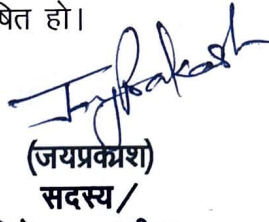 षित हो।
Jayprakash
(जयप्रकाश)
सदस्य /